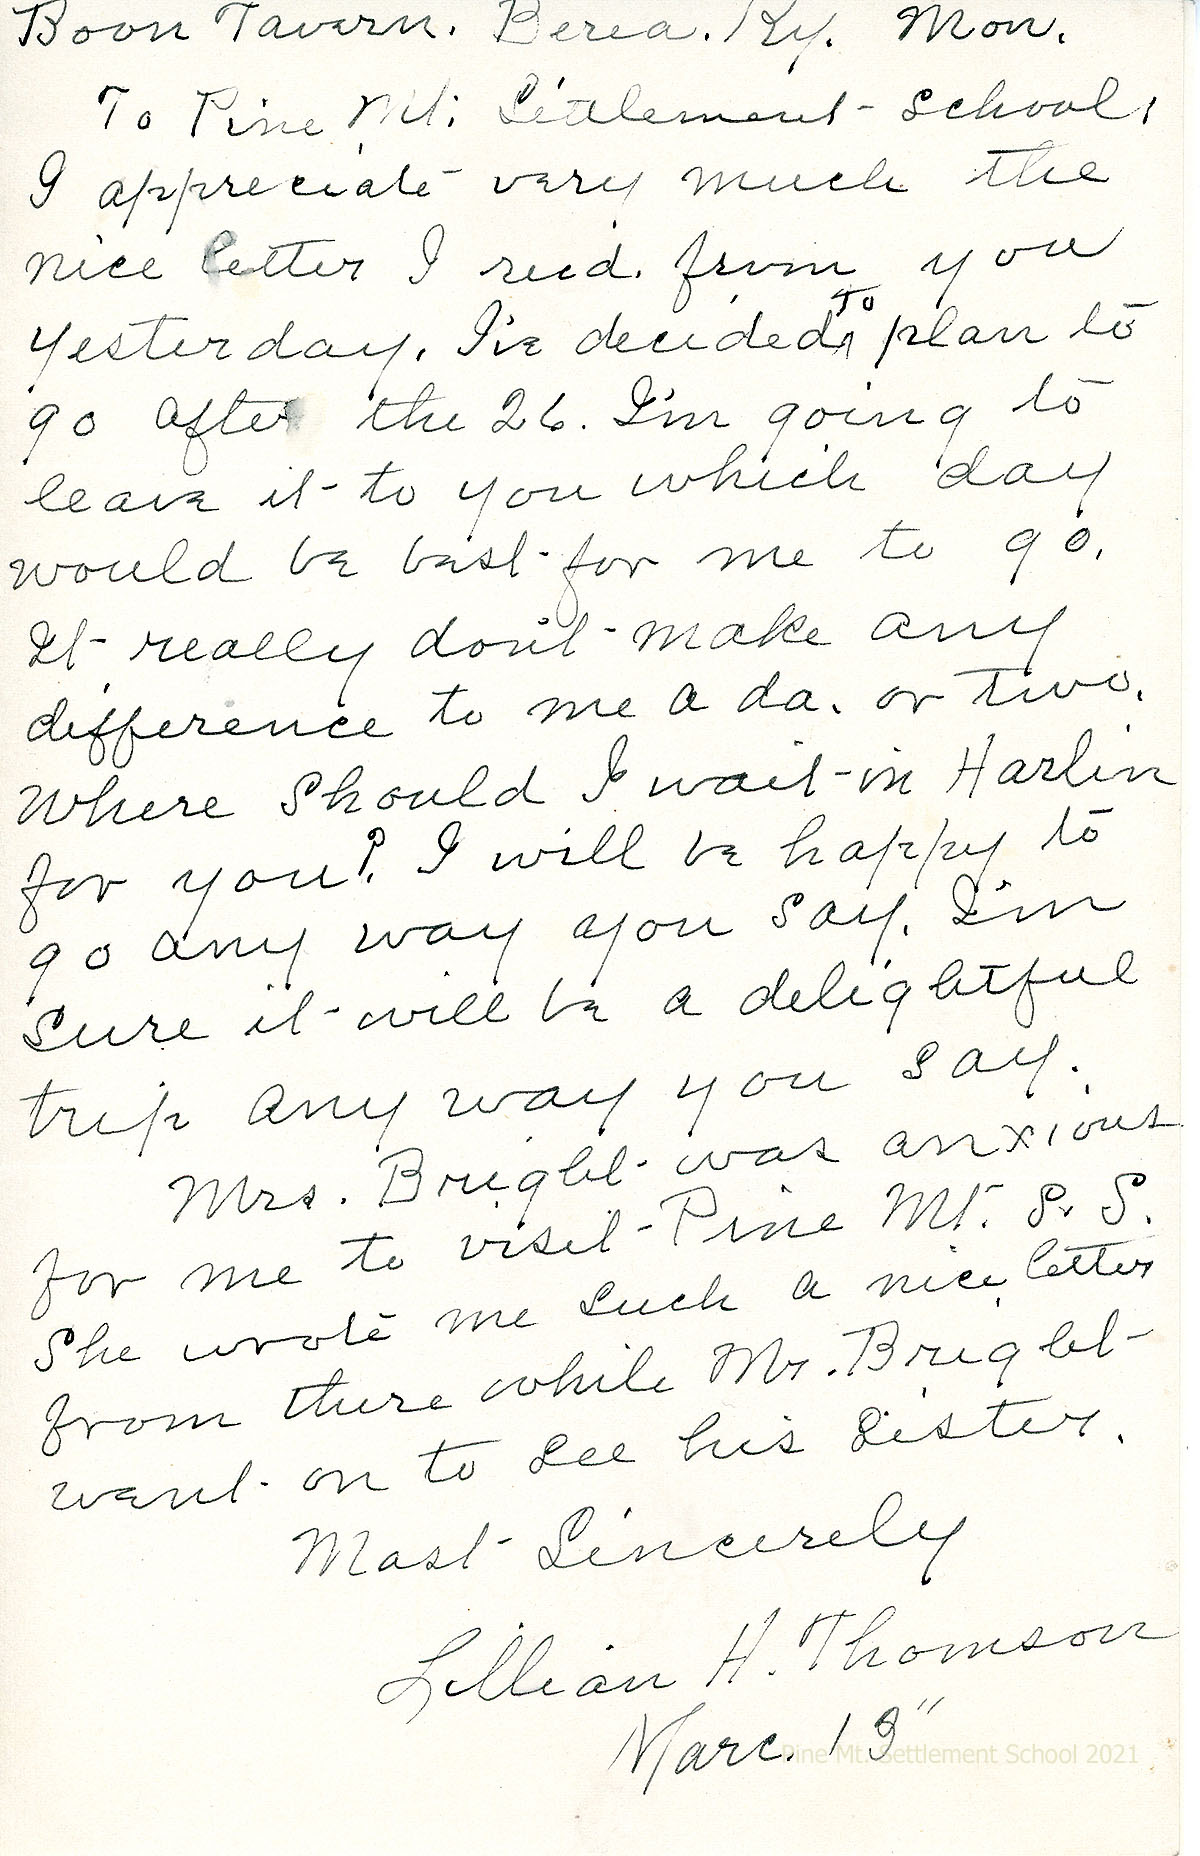 Boon Tavern. Berea. Ky. Mon.
To Pine Mt. Settlement School,
I appreciate very much the
nice letter I recd. from you
yesterday. I've decided to plan to
go after the 26. I'm going to
leave it to you which day
would be best for me to go.
It really don't make any
difference to me a da. or two.
Where should I wait in Harlin
for you? I will be happy to
go any way you say. I'm
sure it will be a delightful
trip any way you say.
Mrs. Bright was anxious
for me to visit Pine Mt. S. S.
She wrote me such a nice letter
from there while Mr. Bright
went on to see his sister.
Most Sincerely
Lillian H. Thomson
Marc. 13"
Pine Mt. Settlement School 2021